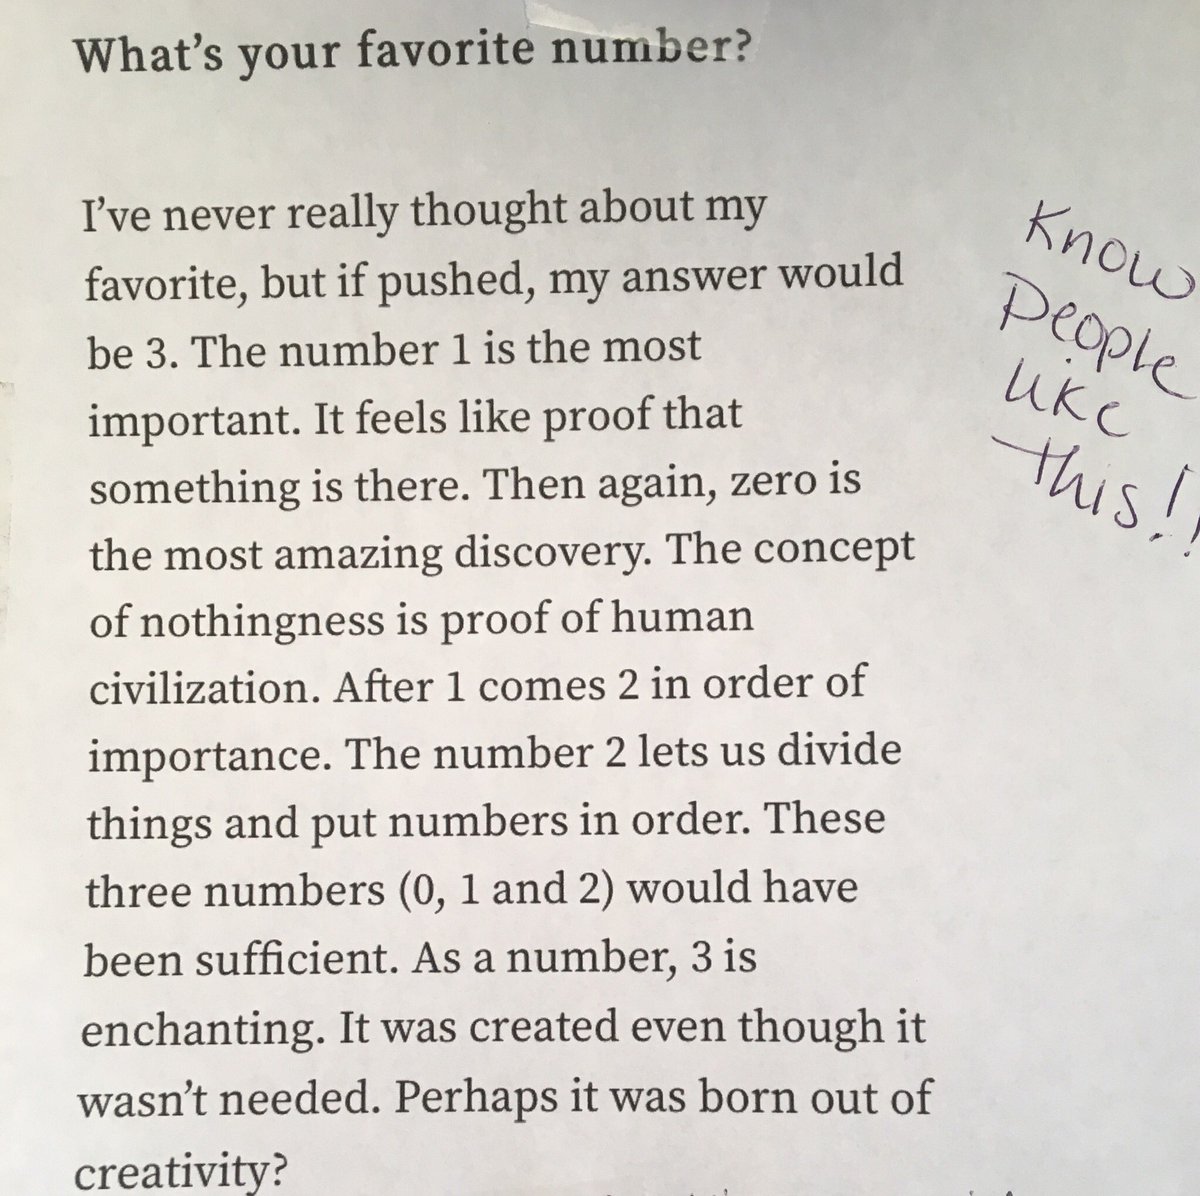 What's your favorite number?
I've never really thought about my
favorite, but if pushed, my answer would
be 3. The number 1 is the most
important. It feels like proof that
something is there. Then again, zero is
the most amazing discovery. The concept
of nothingness is proof of human
civilization. After 1 comes 2 in order of
importance. The number 2 lets us divide
things and put numbers in order. These
three numbers (0, 1 and 2) would have
been sufficient. As a number, 3 is
enchanting. It was created even though it
wasn't needed. Perhaps it was born out of
creativity?
Know
People
like
this!!